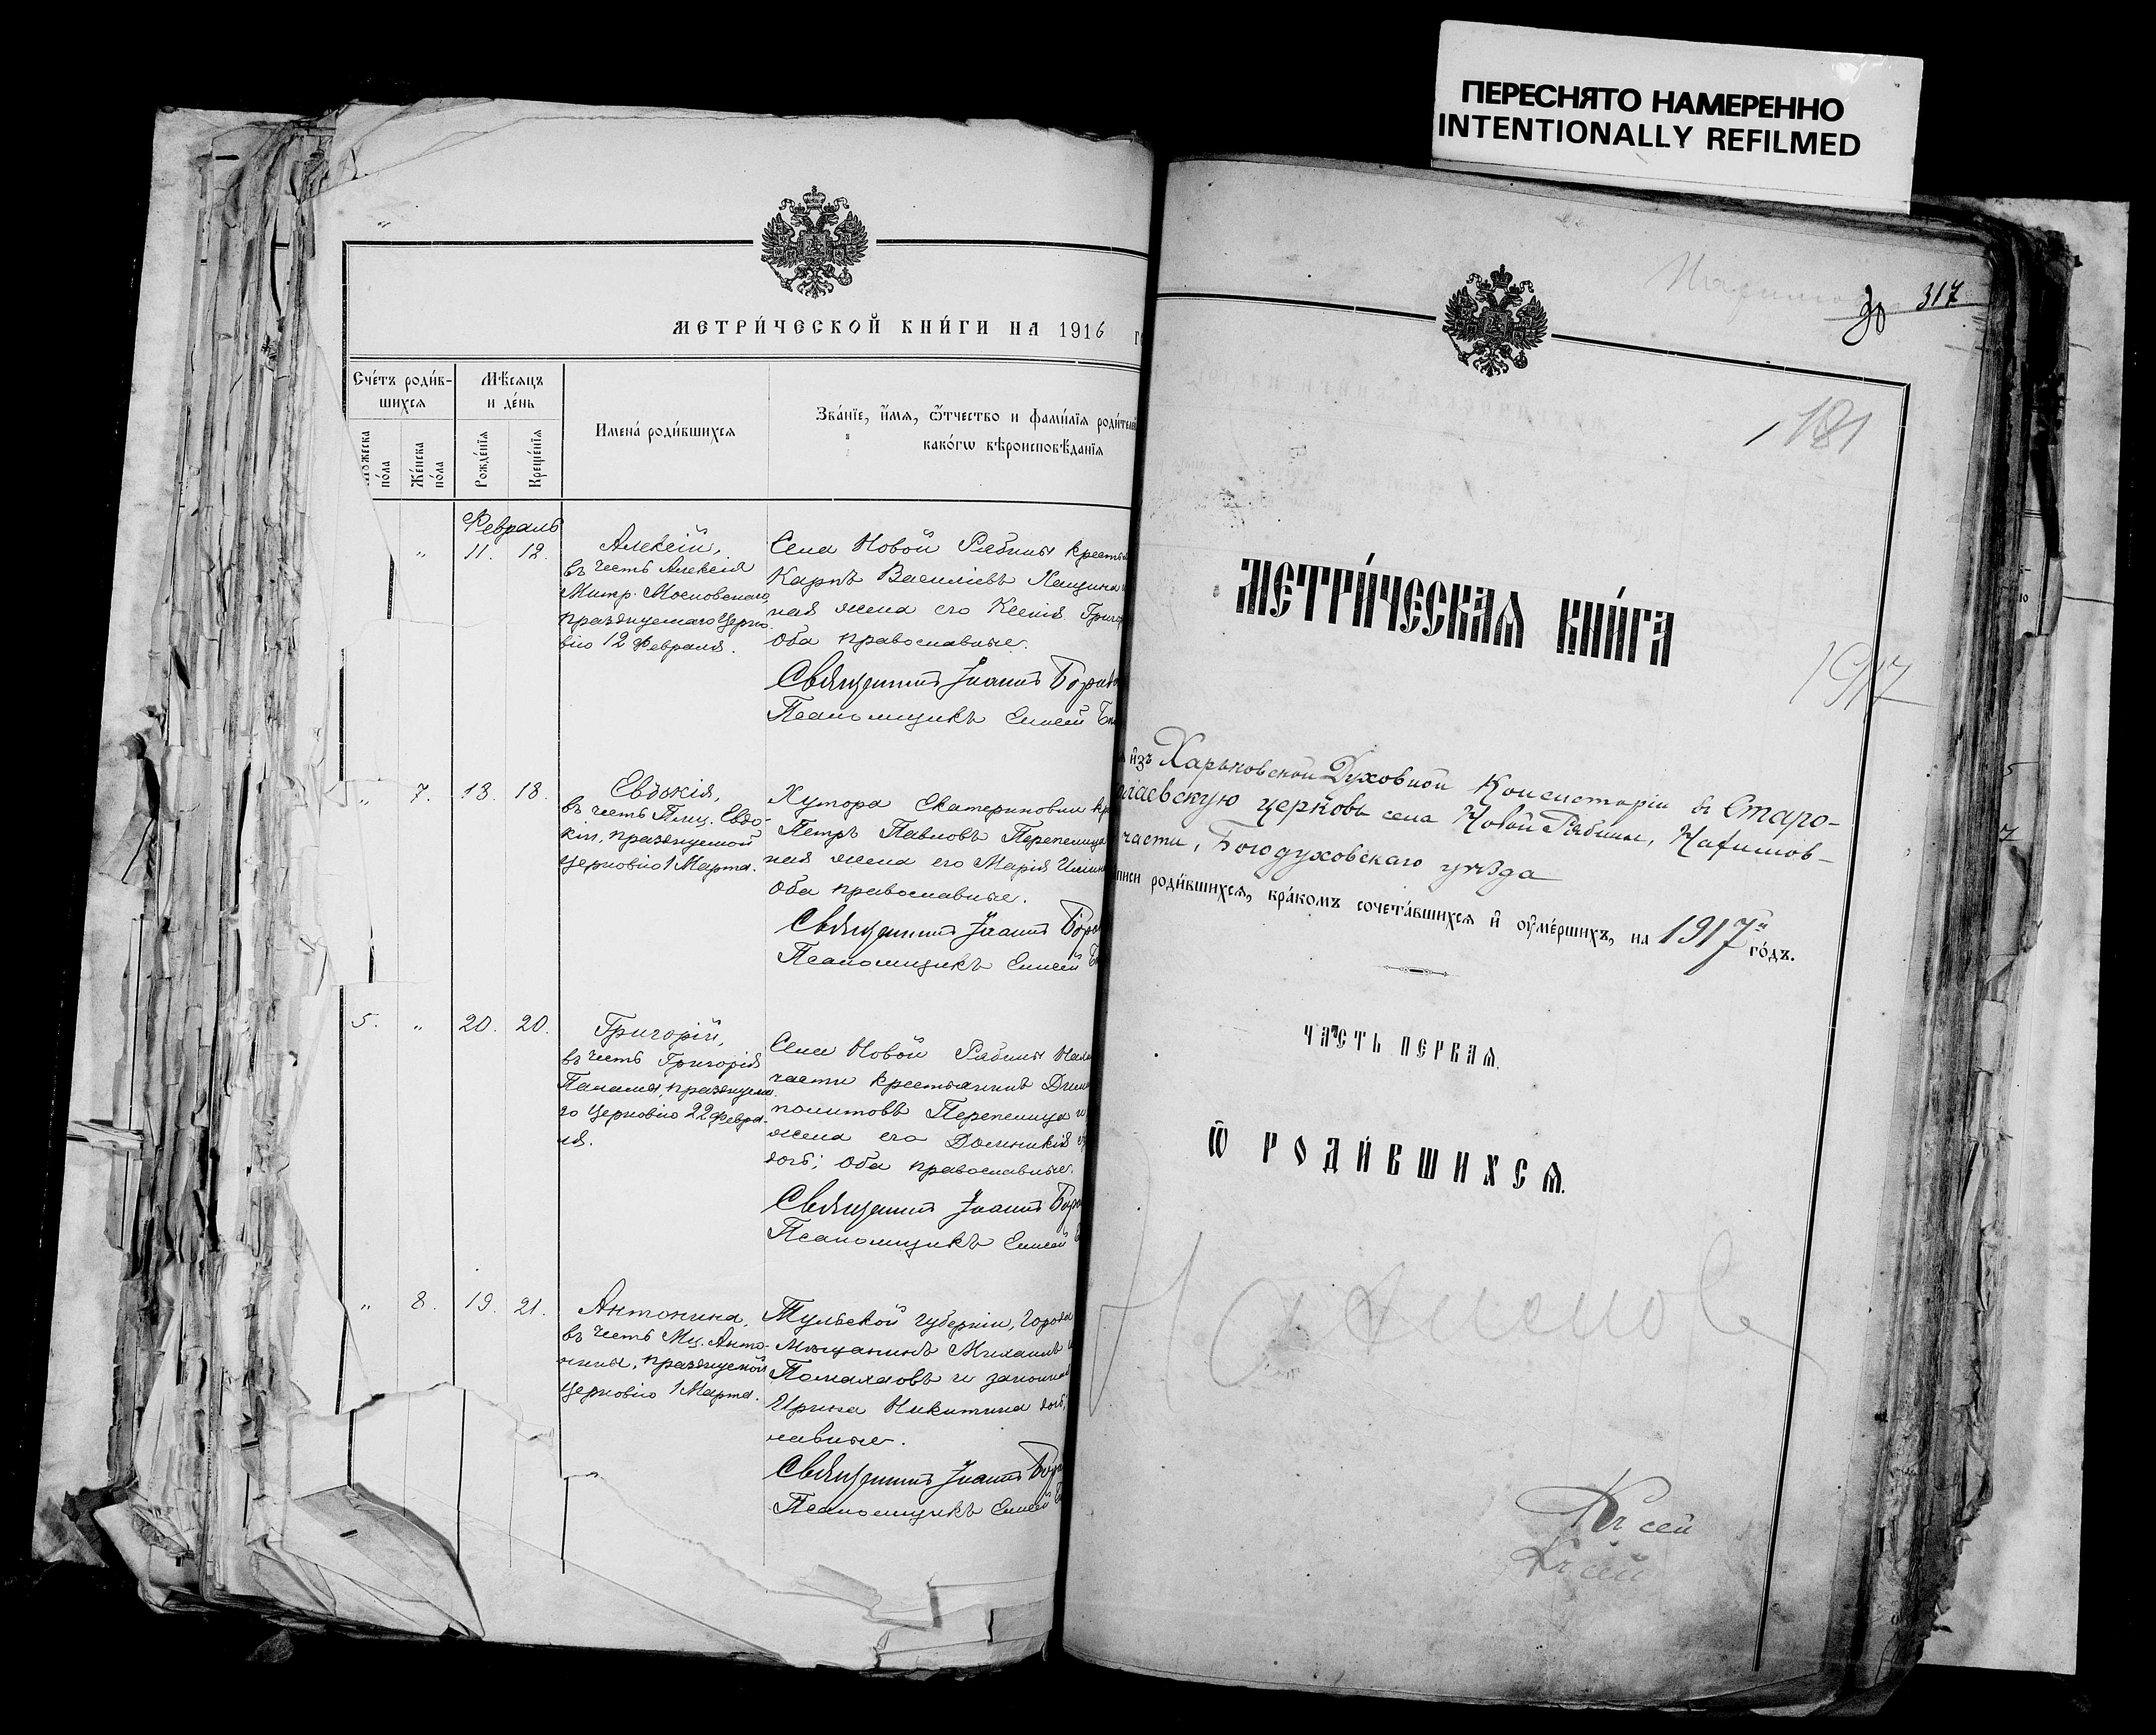 ПЕРЕСНЯТО НАМЕРЕННО
INTENTIONALLY REFILMED
МЕТРИ́ЧЕСКОЙ КНИ́ГИ НА 1916
Сче́тъ роди́в-
шихся
Мѣ́сяцъ
и де́нь
Имена́ роди́вшихся
Зва́нїе, и҆́мя, ѻ҆́тчество и фами́лїя роди́телей
како́гѡ вѣроисповѣ́данїя
по́ла
Же́нска
по́ла
Рожде́нїя
Креще́нїя
Февраль
" 11. 12.
Алексій,
въ честь Алексія
Митр. Московскаго,
празднуемаго Церко-
вію 12 Февраля.
Села Новой Рябины
Карпъ Васильевъ
ная жена его Ксенія
Оба православные.
Священникъ Іоаннъ
Псаломщикъ Елисей
" 7. 18. 18.
Евдокія,
въ честь Прмц. Евдо-
кіи, празднуемой
Церковію 1 Марта.
Хутора Екатериновки
Петръ Павловъ Перепелица
ная жена его Марія
Оба православные.
Священникъ Іоаннъ
Псаломщикъ Елисей
5. " 20. 20.
Григорій,
въ честь Григорія
Паламы, празднуема-
го Церковію 22 Февра-
ля.
Села Новой Рябины
части крестьянинъ
политовъ Перепелица и
жена его Домникія
Оба православные.
Священникъ Іоаннъ
Псаломщикъ Елисей
" 8. 19. 21.
Антонина,
въ честь Мц. Анто-
нины, празднуемой
Церковію 1 Марта.
Тульской губерніи, города
Мѣщанинъ Михаилъ
и законная
Ирина Никитина
лавные.
Священникъ Іоаннъ
Псаломщикъ Елисей
30 317
181
МЕТРИ́ЧЕСКАЯ КНИ́ГА
1917
и҆зъ Харьковской Духовной Консисторіи въ Старо-
лаевскую церковь села Новой Рябины, Нахимов-
части, Богодуховскаго уѣзда
роди́вшихся, бра́комъ сочета́вшихся и҆ ѹ҆ме́ршихъ, на 1917й го́дъ.
ЧА́СТЬ ПЕ́РВАЯ.
Ѽ РОДИ́ВШИХСЯ.